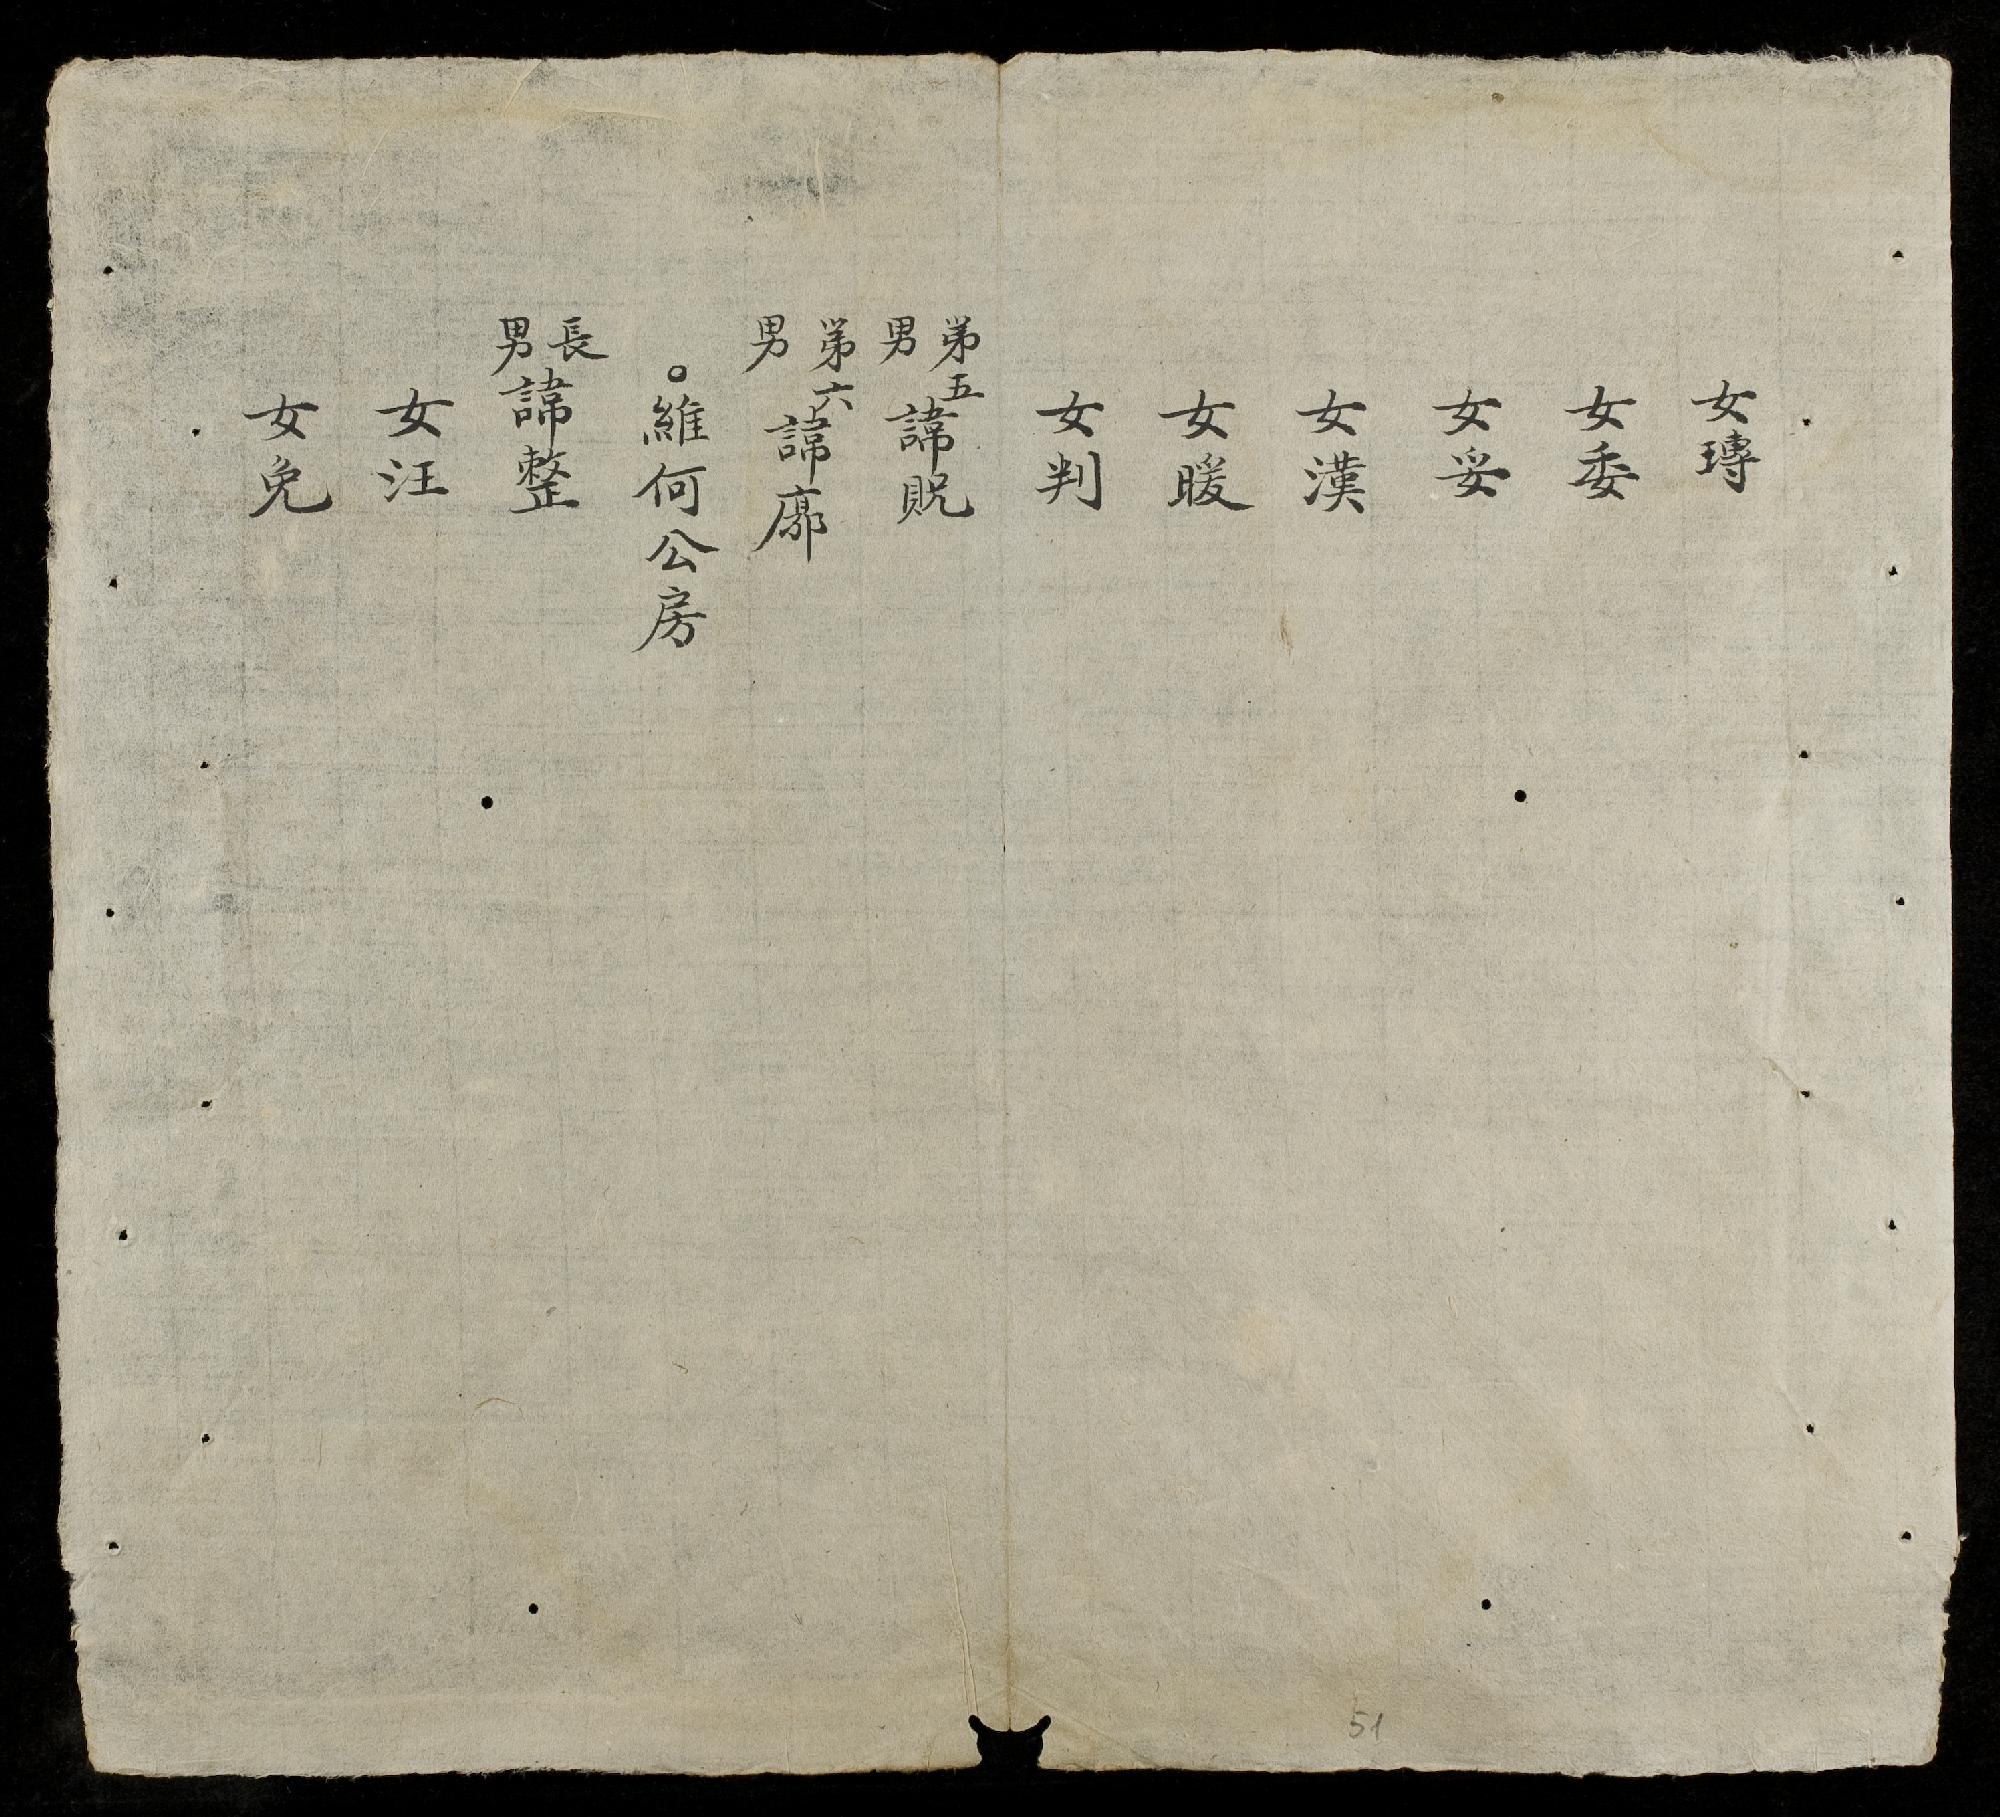 女瑼
女委
女妥
女漢
女暖
女判
第五男諱貺
第六男諱廓
。維何公房
長男諱整
女汪
女免
51